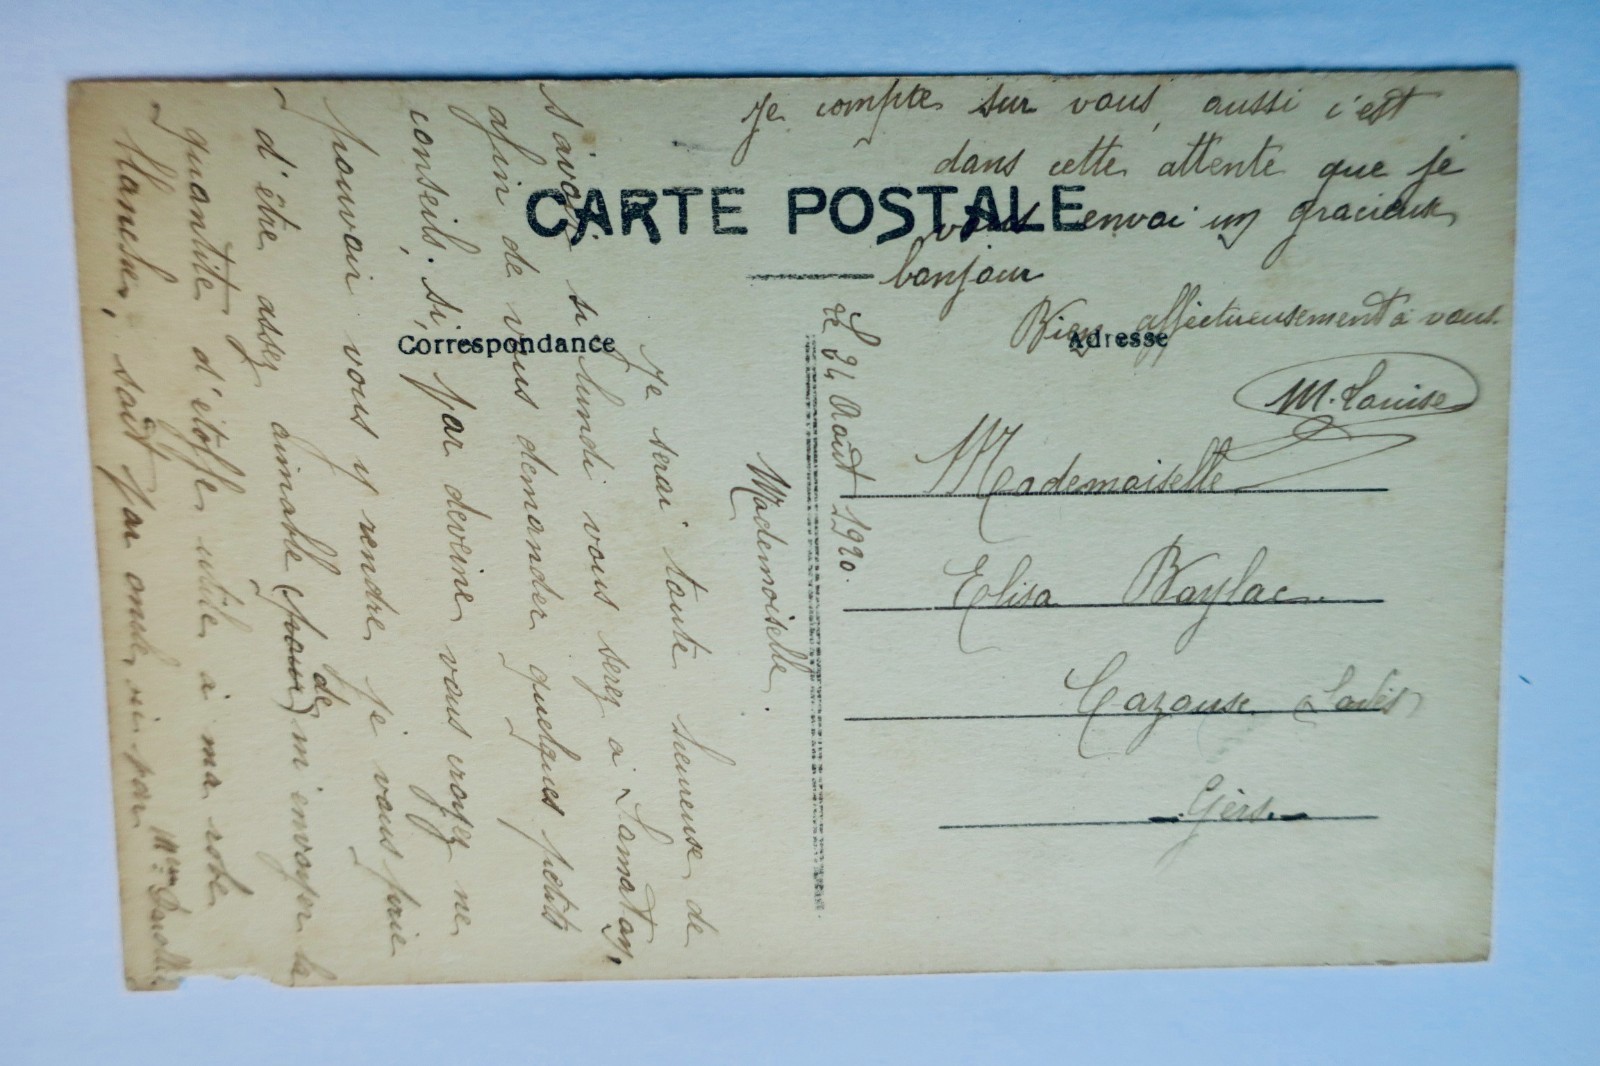 CARTE POSTALE
Correspondance
Adresse
Le 24 Août 1920.
Mademoiselle.
Je serai toute heureuse de
savoir si lundi vous serez à Lamatay,
afin de vous demander quelques petits
conseils. Si, par deveine vous croyez ne
pouvoir vous y rendre je vous prie
d'être assez aimable (pour) de m'envoyer la
quantité d'étoffe utile à ma robe
soit par oncle, ni par
Mme
Je compte sur vous, aussi c'est
dans cette attente que je
vous envoi un gracieux
bonjour
Bien affectueusement à vous.
M. Louise
Mademoiselle
Elisa Baylac.
Gers.